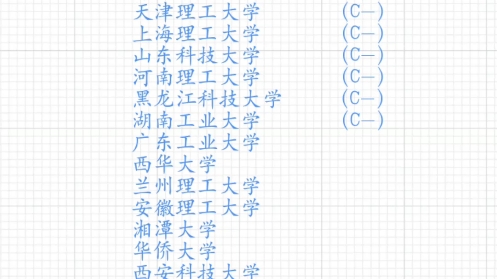 天津理工大学 (C—)
上海理工大学 (C—)
山东科技大学 (C—)
河南理工大学 (C—)
黑龙江科技大学 (C—)
湖南工业大学 (C—)
广东工业大学
西华大学
兰州理工大学
安徽理工大学
湘潭大学
华侨大学
西安科技大学